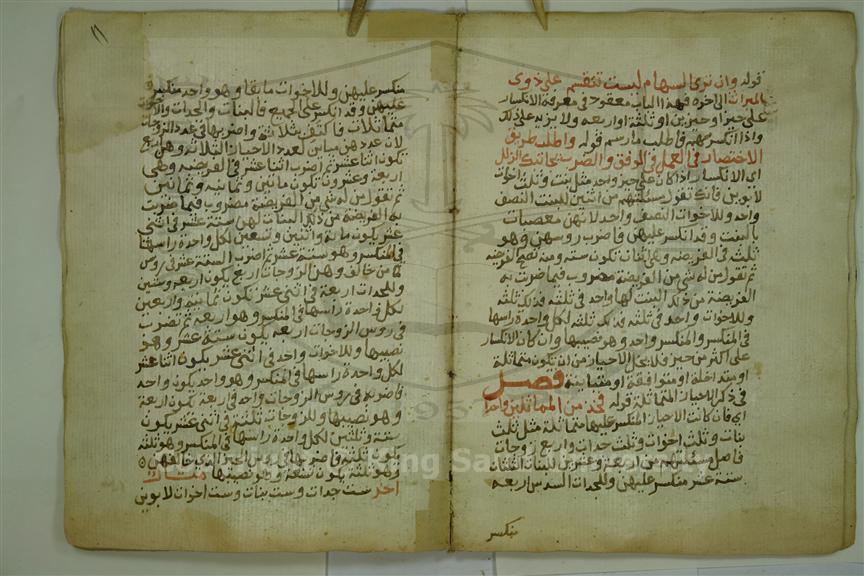 قوله وان ترى السهام ليست تنقسم على ذوى
الميراث الى اخره فهذا الباب معقود في معرفة الانكسار
على حيز او حيزين او ثلثة او اربعة ولا يزيد على ذلك
واذا انكسر سهم فاطلب ما رسم قوله واطلب طريق
الاختصار في العمل في الوفق والضرب يجانبك الزلل
اى الانكسار اذا كان على حيز واحد مثل بنت وثلث اخوات
لابوين فانك تقول مسئلتهم من اثنين للبنت النصف
واحد وللاخوات النصف واحد لانهن معصبات
بالبنت وقد انكسر عليهن فاضرب روسهن وهو
ثلث في الفريضة وهي اثنان تكون ستة ومنه تصح الفريضة
ثم تقول من له شي من الفريضة مضروب فيما ضربت به
الفريضة من ذلك البنت لها واحد في ثلثة فذلك ثلثة
وللاخوات واحد في ثلثة فذلك ثلثة لكل واحدة راسها
في المنكسر والمنكسر واحد وهو نصيبها وان كان الانكسار
على اكثر من حيز فلا يخلو الاحياز من ان تكون متماثلة
او متداخلة او متوافقة او متباينة فصل
في ذكر الاحياز المتماثلة قوله فخذ من المماثلين واحدا
اى فان كانت الاحياز المنكسر عليها متماثلة مثل ثلث
بنات وثلث اخوات وثلث جدات واربع زوجات
فاصل مسئلتهم من اربعة وعشرين للبنات الثلثان
ستة عشر منكسر عليهن وللجدات السدس اربعة
منكسر
١١
منكسر عليهن وللاخوات ما بقا وهو واحد منكسر
عليهن وقد انكسر على الجميع فالبنات والجدات والاخوات
متماثلات فاكتف بثلاثة واضربها في عدد الزوجات
لان عددهن مباين لعدد الاحياز الثلاثة وهن اربع
تكون اثنا عشر ثم اضرب اثنا عشر في الفريضة وهي
اربعة وعشرون تكون مائتين وثمانية وثمانين
ثم تقول من له شي من الفريضة مضروب فيما ضربت
به الفريضة من ذلك البنات لهن ستة عشر في اثني
عشر يكون مائة واثنين وتسعين لكل واحدة راسها
في المنكسر وهو ستة عشر ثم اضرب الستة عشر في روس
من خالف وهن الزوجات اربع يكون اربعة وستين
وللجدات اربعة في اثني عشر تكون ثمانية واربعين
لكل واحدة راسها في المنكسر وهو اربعة ثم تضرب
في روس الزوجات اربعة يكون ستة عشر وهو
نصيبها وللاخوات واحد في اثني عشر يكون اثنا عشر
لكل واحدة راسها في المنكسر وهو واحد يكون واحد
فاضربه في روس الزوجات واحد في اربعة يكون اربعة
وهو نصيبها وللزوجات ثلثة في اثني عشر يكون
ستة وثلثين لكل واحدة راسها في المنكسر وهو ثلثة
يكون ثلثة فاضربها في
وهو ثلثة يكون تسعة وهو نصيبها مثال
اخر ست جدات وست بنات وست اخوات لابوين
King Saud University